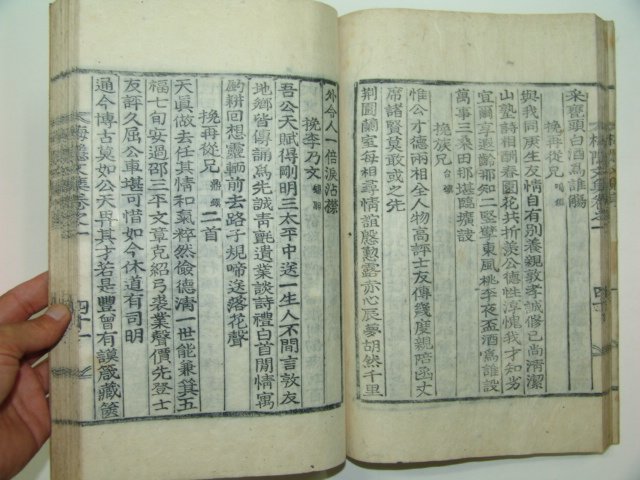 采甕頭白酒為誰觴
挽再從兄
與我同庚生友情自有別養親敦孝誠修己尚清潔
山塾詩相酬春園花共折羨公德性淳愧我才知劣
宜爾享遐齡那知二竪孼東風桃李夜盃酒為誰設
萬事三桑田那堪臨壙訣
挽族兄
惟公才德兩相全人物高評士友傳幾度親陪函丈
席諸賢莫敢或之先
荆園蘭室每相尋情誼慇懃露赤心辰夢胡然千里
外令人一倍淚沾襟
挽李乃文
吾公天賦得剛明三太平中送一生人不間言敦友
地鄉皆傳誦為先誠青氈遺業談詩禮白首閒情寓
釣耕回想靈輀前去路子規啼送落花聲
挽再從兄 二首
天眞做去任其情和氣粹然儉德淸一世能兼箕五
福七旬安過邵三平文章克紹弓裘業聲價先登士
友評久屈公車堪可惜如今休道有司明
通今博古莫如公天畀其才若是豐曾有謨箴藏篋